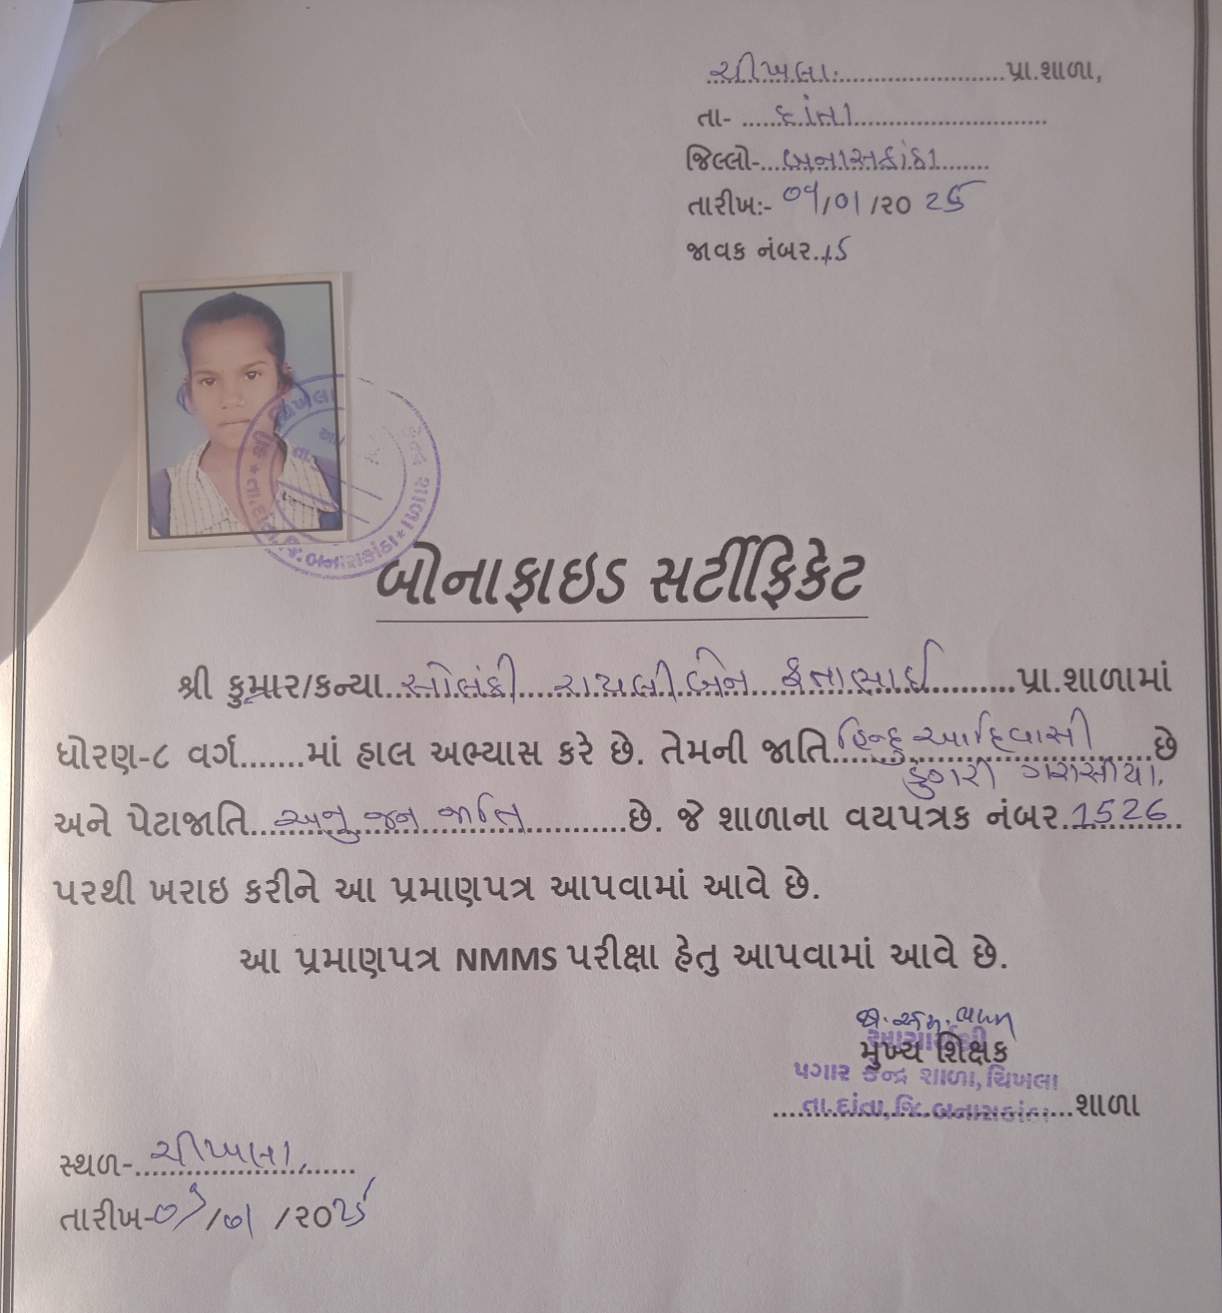 ચીખલા પ્રા.શાળા,
તા- દાંતા
જિલ્લો- બનાસકાંઠા
તારીખ:- 09/01/૨૦ 2૬
જાવક નંબર.
બોનાફાઇડ સર્ટીફિકેટ
શ્રી કુમાર/કન્યા સોલંકી રાયલીબેન કેતાભાઈ પ્રા.શાળામાં
ધોરણ-૮ વર્ગ.......માં હાલ અભ્યાસ કરે છે. તેમની જાતિ હિન્દુ આદિવાસી છે
ડુંગરી ગરાસીયા.
અને પેટાજાતિ અનુ જન જાતિ છે. જે શાળાના વયપત્રક નંબર.1526
પરથી ખરાઇ કરીને આ પ્રમાણપત્ર આપવામાં આવે છે.
આ પ્રમાણપત્ર NMMS પરીક્ષા હેતુ આપવામાં આવે છે.
આચાર્યશ્રી
મુખ્ય શિક્ષક
પગાર કેન્દ્ર શાળા, ચિખલા
તા.દાંતા, જિ.બનાસકાંઠા શાળા
સ્થળ- ચીખલા,
તારીખ- /૦1 /૨૦